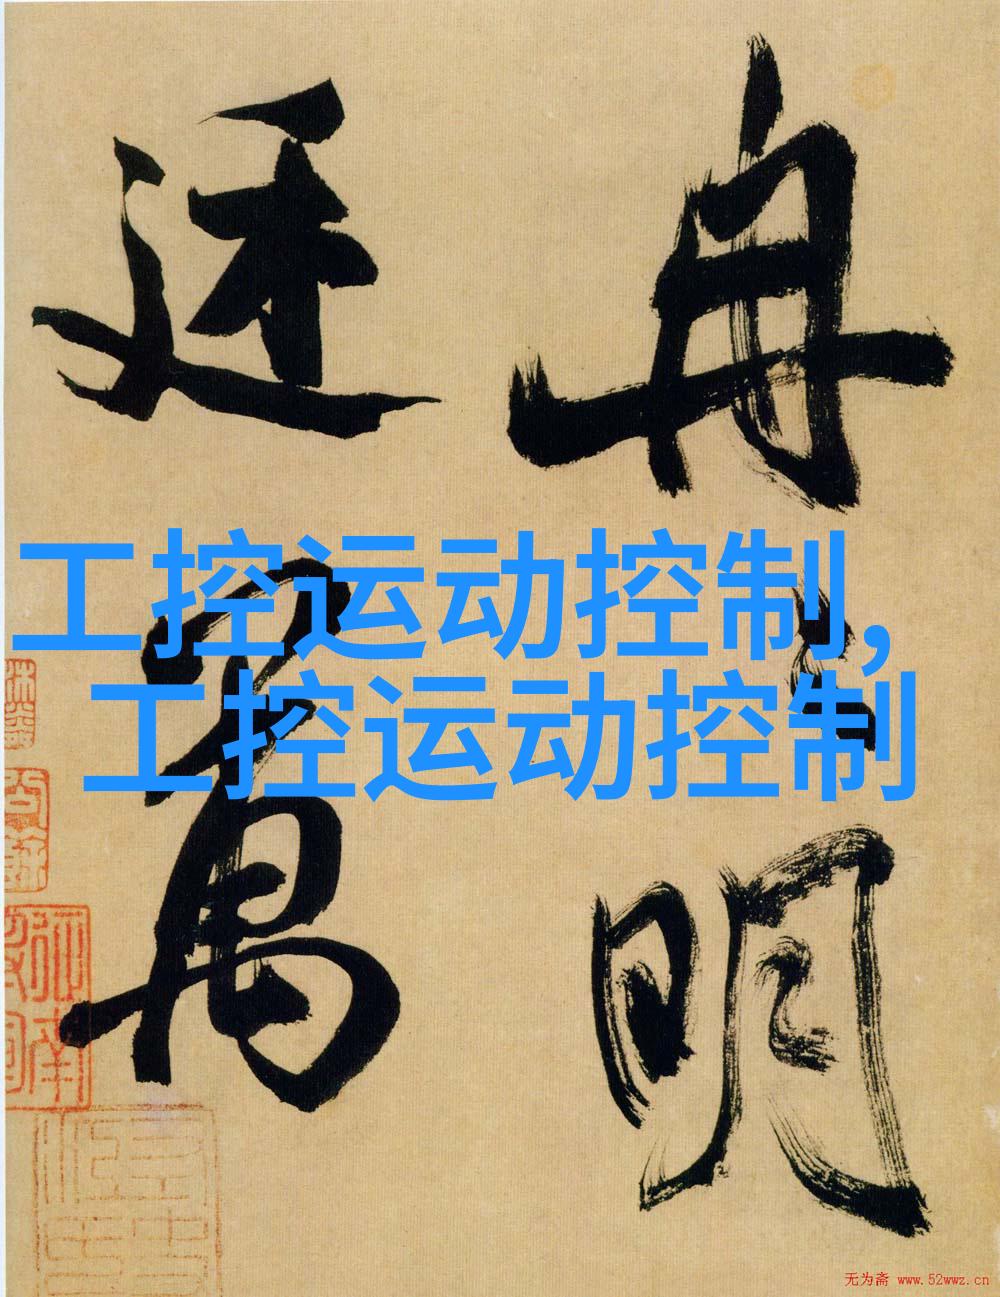 冉冉明
廷萬
工控运动控制,
工控运动控制
无为斋 www.52wwz.cn